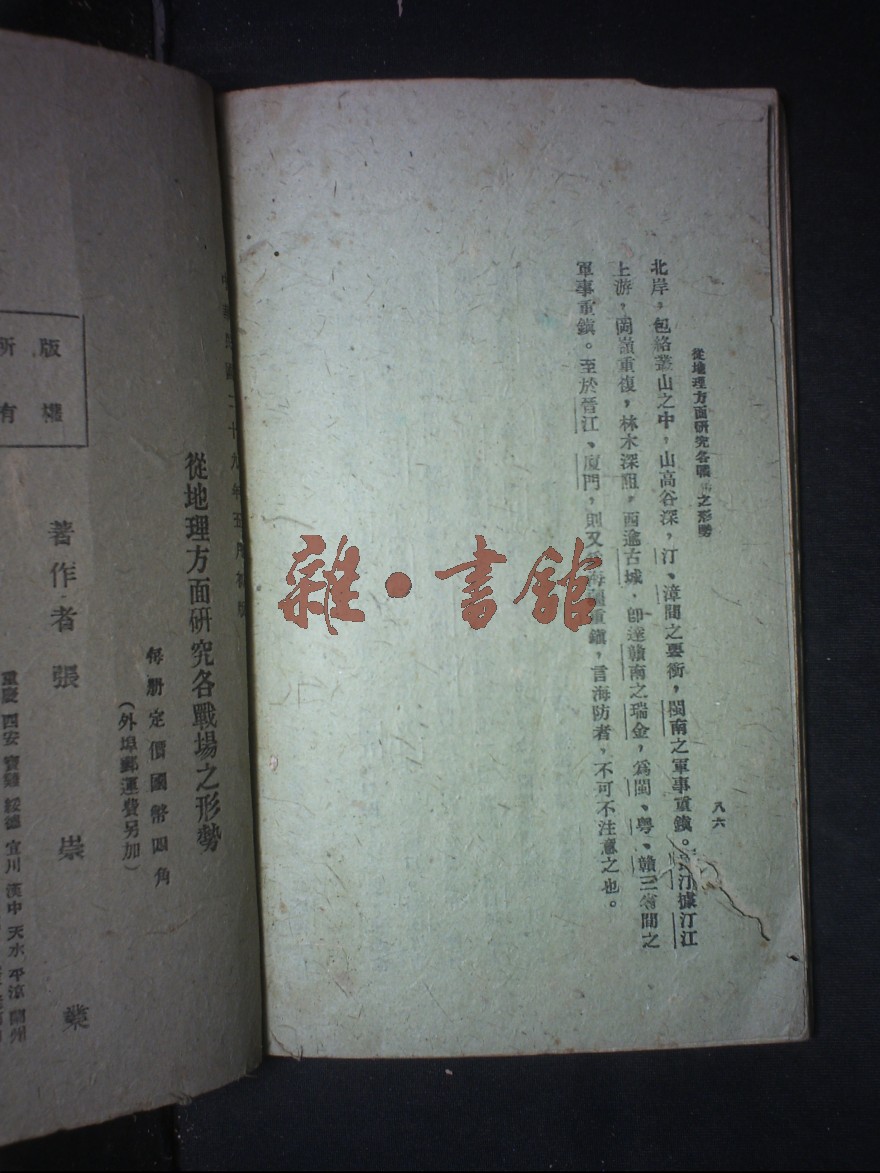 從地理方面研究各戰之形勢
八六
北岸，包絡叢山之中，山高谷深，汀、漳間之要衝，閩南之軍事重鎮。汀據汀江
上游，岡嶺重復，林木深阻，西逾古城，即達贛南之瑞金，為閩、粵、贛三省間之
軍事重鎮。至於晉江、廈門，則又為海疆重鎮，言海防者，不可不注意之也。
雜·書館
民國二十九年五月初版
從地理方面研究各戰場之形勢
每冊定價國幣四角
（外埠郵運費另加）
著作者 張崇業
重慶 西安 寶雞 綏德 宜川 漢中 天水 平涼 蘭州
版權
所有